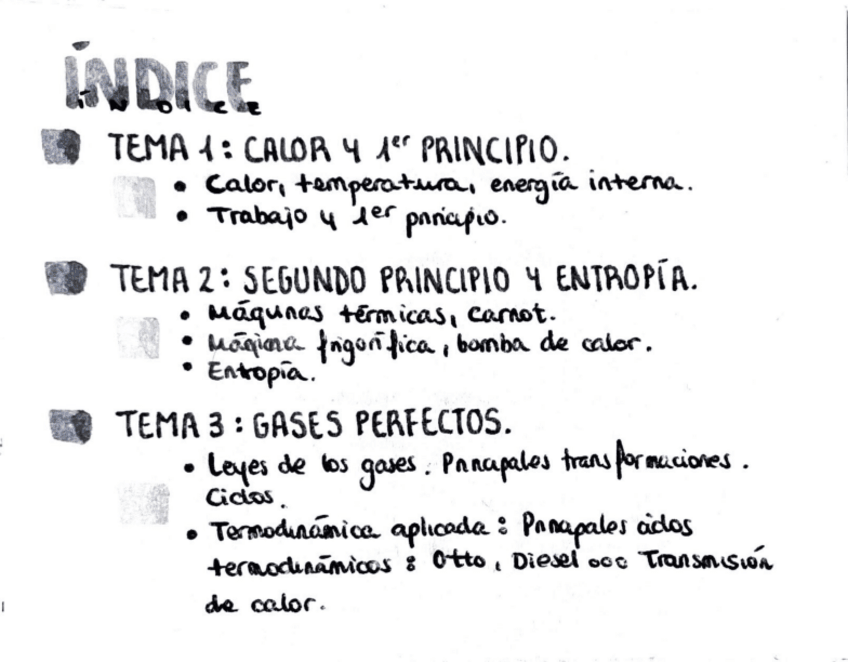 ÍNDICE
TEMA 1: CALOR Y 1er PRINCIPIO.
• Calor, temperatura, energía interna.
• Trabajo y 1er principio.
TEMA 2: SEGUNDO PRINCIPIO Y ENTROPÍA.
• Máquinas térmicas, Carnot.
• Máquina frigorífica, bomba de calor.
• Entropía.
TEMA 3: GASES PERFECTOS.
• Leyes de los gases. Principales transformaciones.
Ciclos.
• Termodinámica aplicada: Principales ciclos
termodinámicos: Otto, Diesel ... Transmisión
de calor.